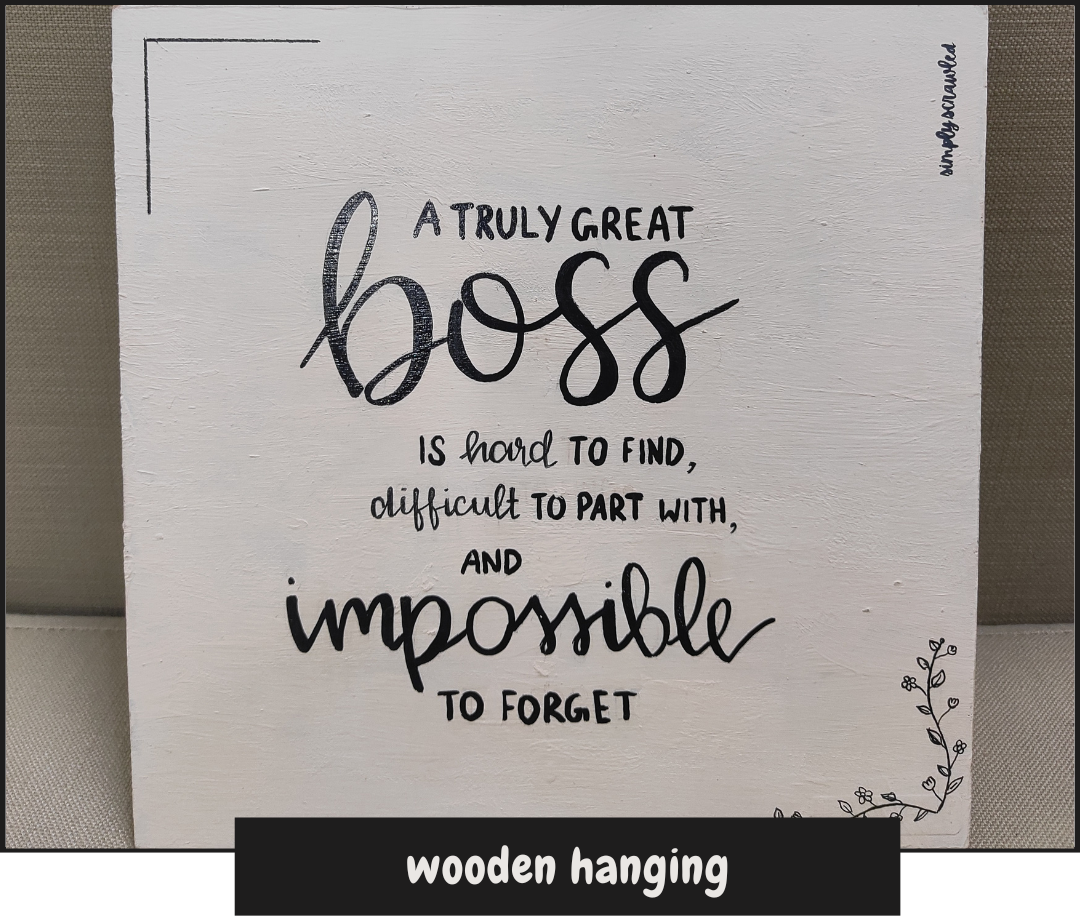 simply scrawled
A TRULY GREAT
boss
IS hard TO FIND,
difficult TO PART WITH,
AND
impossible
TO FORGET
wooden hanging